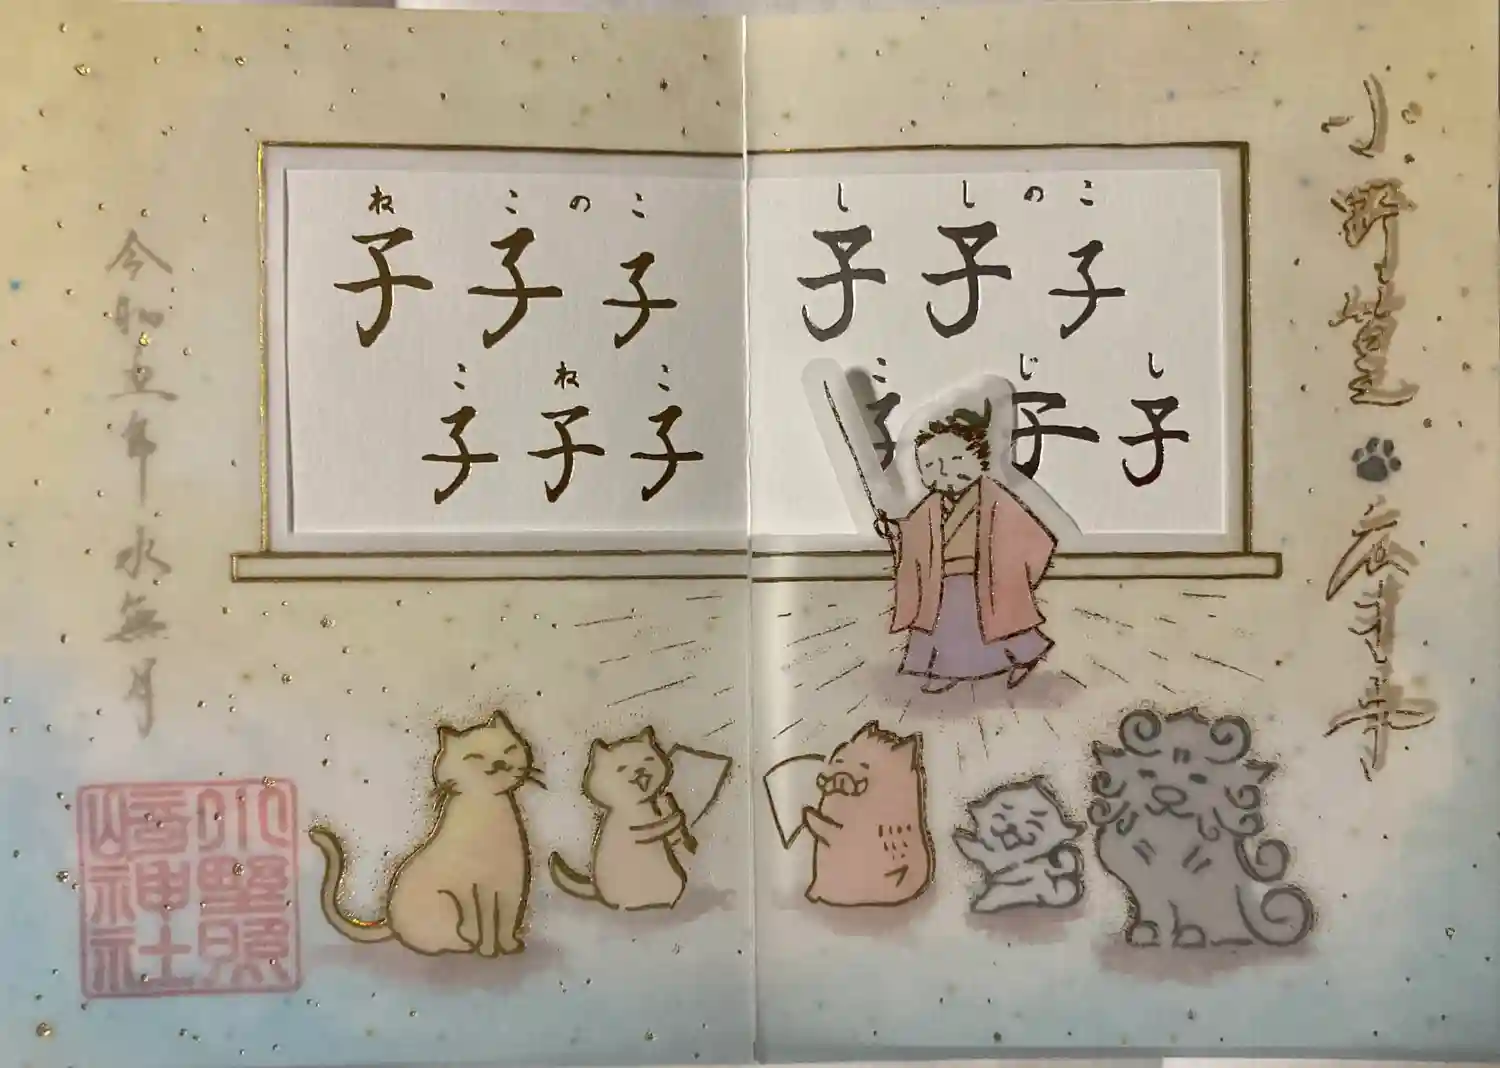 小野篁
広才事
ね こ の こ
子 子 子
こ ね こ
子 子 子
し し の こ
子 子 子
こ じ し
子 子 子
令和五年水無月
小野照
崎神社